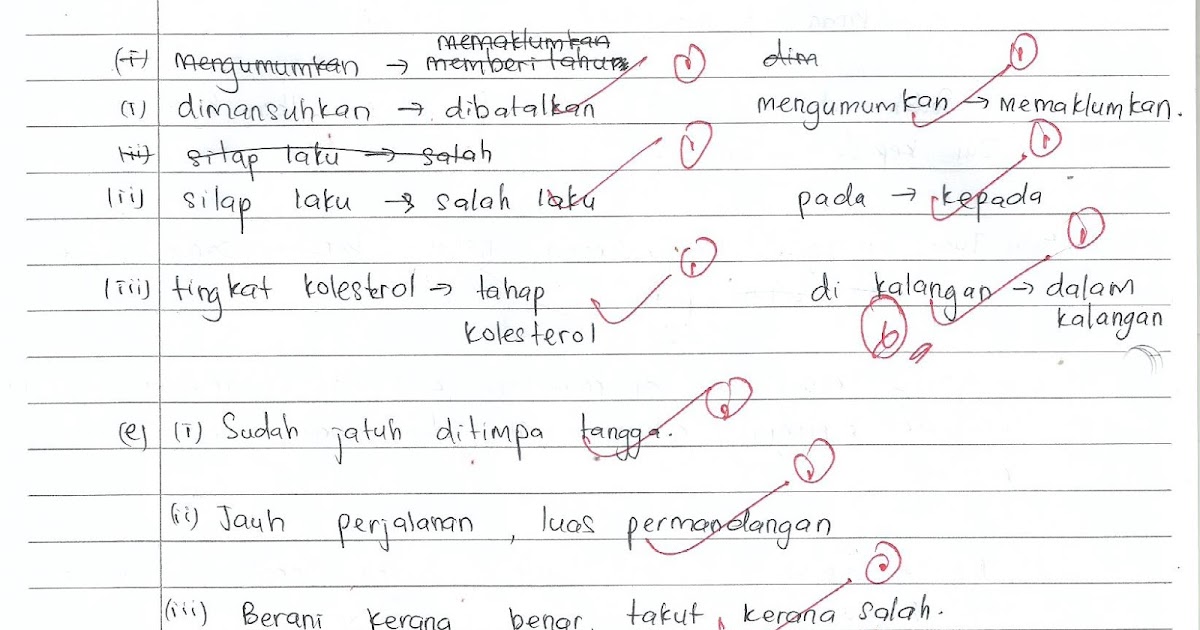 memaklumkan
(i) mengumumkan → memberi tahu dim
(i) dimansuhkan → dibatalkan mengumumkan → memaklumkan.
(ii) silap laku → salah
(ii) silap laku → salah laku pada → kepada
(iii) tingkat kolesterol → tahap di kalangan → dalam
kolesterol kalangan
6
(e) (i) Sudah jatuh ditimpa tangga.
(ii) Jauh perjalanan, luas permandangan
(iii) Berani kerana benar, takut kerana salah.